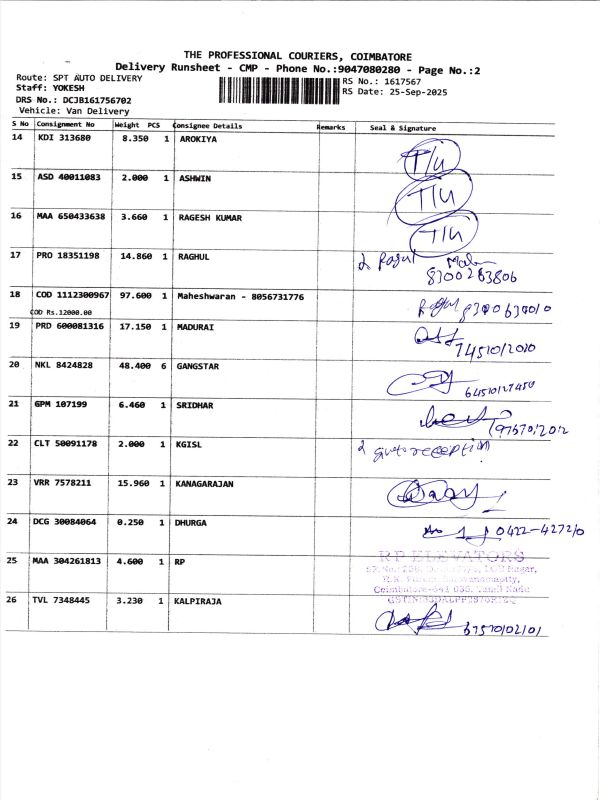 THE PROFESSIONAL COURIERS, COIMBATORE
Delivery Runsheet - CMP - Phone No.:9047080280 - Page No.:2
Route: SPT AUTO DELIVERY
RS No.: 1617567
Staff: YOKESH
RS Date: 25-Sep-2025
DRS No.: DCJB161756702
Vehicle: Van Delivery
S No Consignment No Weight PCS Consignee Details Remarks Seal & Signature
14 KDI 313680 8.350 1 AROKIYA
15 ASD 40011083 2.000 1 ASHWIN
16 MAA 650433638 3.660 1 RAGESH KUMAR
17 PRO 18351198 14.860 1 RAGHUL
8300283806
18 COD 1112300967 97.600 1 Maheshwaran - 8056731776
COD Rs.12000.00
19 PRD 600081316 17.150 1 MADURAI
74510/2010
20 NKL 8424828 48.400 6 GANGSTAR
21 GPM 107199 6.460 1 SRIDHAR
22 CLT 50091178 2.000 1 KGISL
reception
23 VRR 7578211 15.960 1 KANAGARAJAN
24 DCG 30084064 0.250 1 DHURGA
0422-4272/0
25 MAA 304261813 4.600 1 RP
RP ELEVATORS
26 TVL 7348445 3.230 1 KALPIRAJA